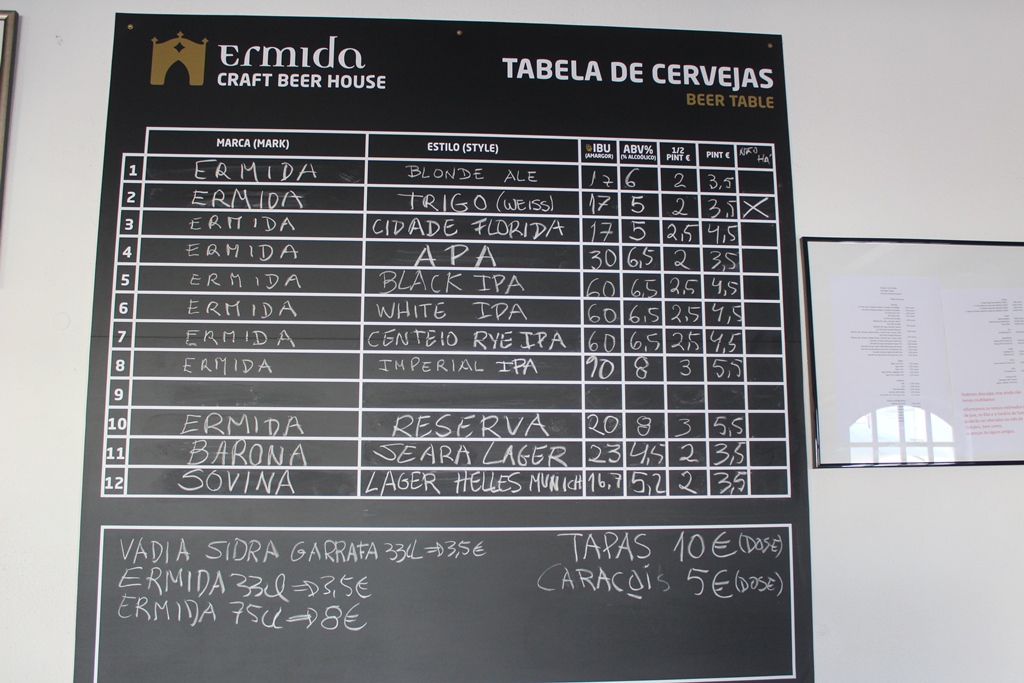 ERMIDA
CRAFT BEER HOUSE
TABELA DE CERVEJAS
BEER TABLE
MARCA (MARK) ESTILO (STYLE) IBU (AMARGOR) ABV% (% ALCOÓLICO) 1/2 PINT € PINT € NÃO HÁ
1 ERMIDA BLONDE ALE 17 6 2 3,5
2 ERMIDA TRIGO (WEISS) 17 5 2 3,5 X
3 ERMIDA CIDADE FLORIDA 17 5 2,5 4,5
4 ERMIDA APA 30 6,5 2 3,5
5 ERMIDA BLACK IPA 60 6,5 2,5 4,5
6 ERMIDA WHITE IPA 60 6,5 2,5 4,5
7 ERMIDA CENTEIO RYE IPA 60 6,5 2,5 4,5
8 ERMIDA IMPERIAL IPA 90 8 3 5,5
9
10 ERMIDA RESERVA 20 8 3 5,5
11 BARONA SEARA LAGER 23 4,5 2 3,5
12 SOVINA LAGER HELLES MUNICH 16,7 5,2 2 3,5
VADIA SIDRA GARRAFA 33CL ⇒ 3,5€
ERMIDA 33cl ⇒ 3,5€
ERMIDA 75cl ⇒ 8€
TAPAS 10€ (DOSE)
CARACÓIS 5€ (DOSE)